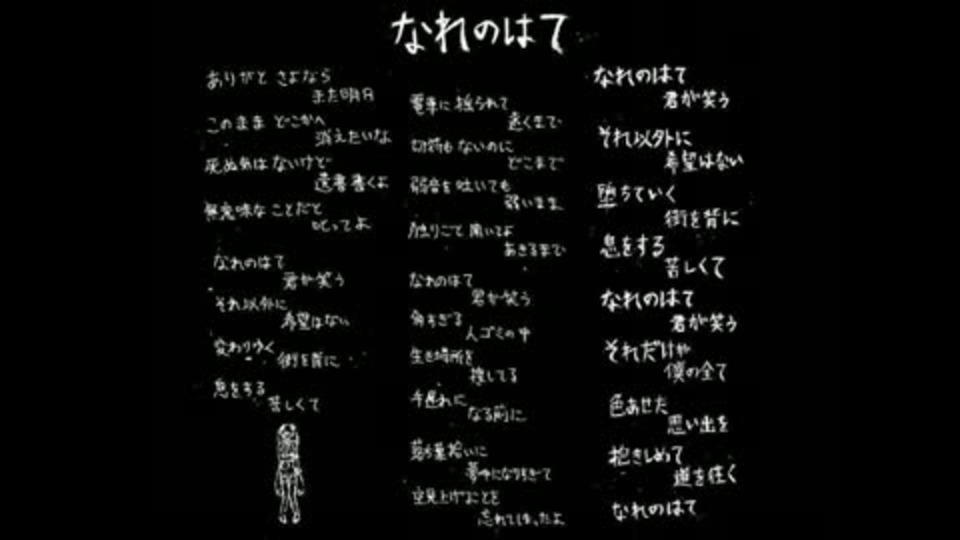 なれのはて
ありがと さよなら
また明日
このまま どこかへ
消えたいな
死ぬ気は ないけど
遺書書くよ
無意味な ことだと
叱ってよ
なれのはて
君が笑う
それ以外に
希望はない
変わりゆく
街を背に
息をする
苦しくて
電車に 揺られて
遠くまで
切符も ないのに
どこまで
弱音を 吐いても
弱いまま
独りごと 聞いてよ
あきるまで
なれのはて
君が笑う
角ちぎる
人ゴミの中
生き場所を
探してる
手遅れに
なる前に
落ち葉拾いに
夢中になりすぎて
空見上げることを
忘れてしまったよ
なれのはて
君が笑う
それ以外に
希望はない
堕ちていく
街を背に
息をする
苦しくて
なれのはて
君が笑う
それだけが
僕の全て
色あせた
思い出を
抱きしめて
道を往く
なれのはて